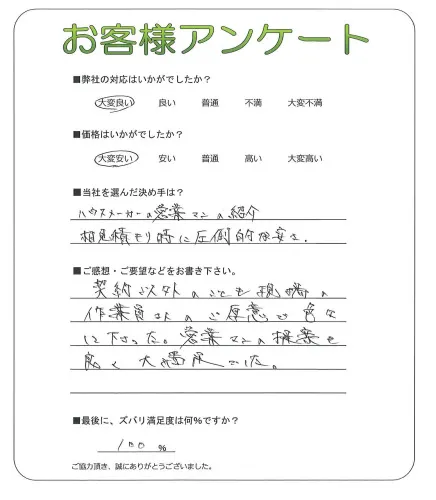 お客様アンケート
■弊社の対応はいかがでしたか？
大変良い 良い 普通 不満 大変不満
■価格はいかがでしたか？
大変安い 安い 普通 高い 大変高い
■当社を選んだ決め手は？
ハウスメーカーの営業マンの紹介
相見積もり時に圧倒的な安さ．
■ご感想・ご要望などをお書き下さい。
契約以外のことも現場の
作業員さんのご厚意で色々
して下さった。営業マンの提案も
良く大満足でした。
■最後に、ズバリ満足度は何%ですか？
100 %
ご協力頂き、誠にありがとうございました。